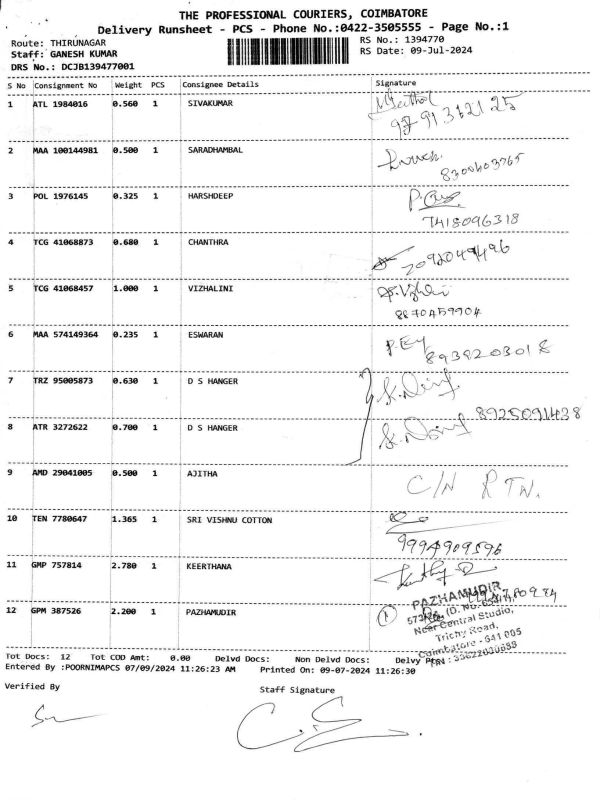 THE PROFESSIONAL COURIERS, COIMBATORE
Delivery Runsheet - PCS - Phone No.:0422-3505555 - Page No.:1
Route: THIRUNAGAR RS No.: 1394770
Staff: GANESH KUMAR RS Date: 09-Jul-2024
DRS No.: DCJB139477001
S No Consignment No Weight PCS Consignee Details Signature
1 ATL 1984016 0.560 1 SIVAKUMAR
2 MAA 100144981 0.500 1 SARADHAMBAL
8300603765
3 POL 1976145 0.325 1 HARSHDEEP
7418096318
4 TCG 41068873 0.680 1 CHANTHRA
5 TCG 41068457 1.000 1 VIZHALINI
8870459904
6 MAA 574149364 0.235 1 ESWARAN
8938203018
7 TRZ 95005873 0.630 1 D S HANGER
8925091438
8 ATR 3272622 0.700 1 D S HANGER
9 AMD 29041005 0.500 1 AJITHA C/N RTN.
10 TEN 7780647 1.365 1 SRI VISHNU COTTON
9994909596
11 GMP 757814 2.780 1 KEERTHANA
12 GPM 387526 2.200 1 PAZHAMUDIR
PAZHAMUDIR
Near Central Studio,
Trichy Road,
Coimbatore - 641 005
Tot Docs: 12 Tot COD Amt: 0.00 Delvd Docs: Non Delvd Docs: Delvy
Entered By :POORNIMAPCS 07/09/2024 11:26:23 AM Printed On: 09-07-2024 11:26:30
Verified By Staff Signature